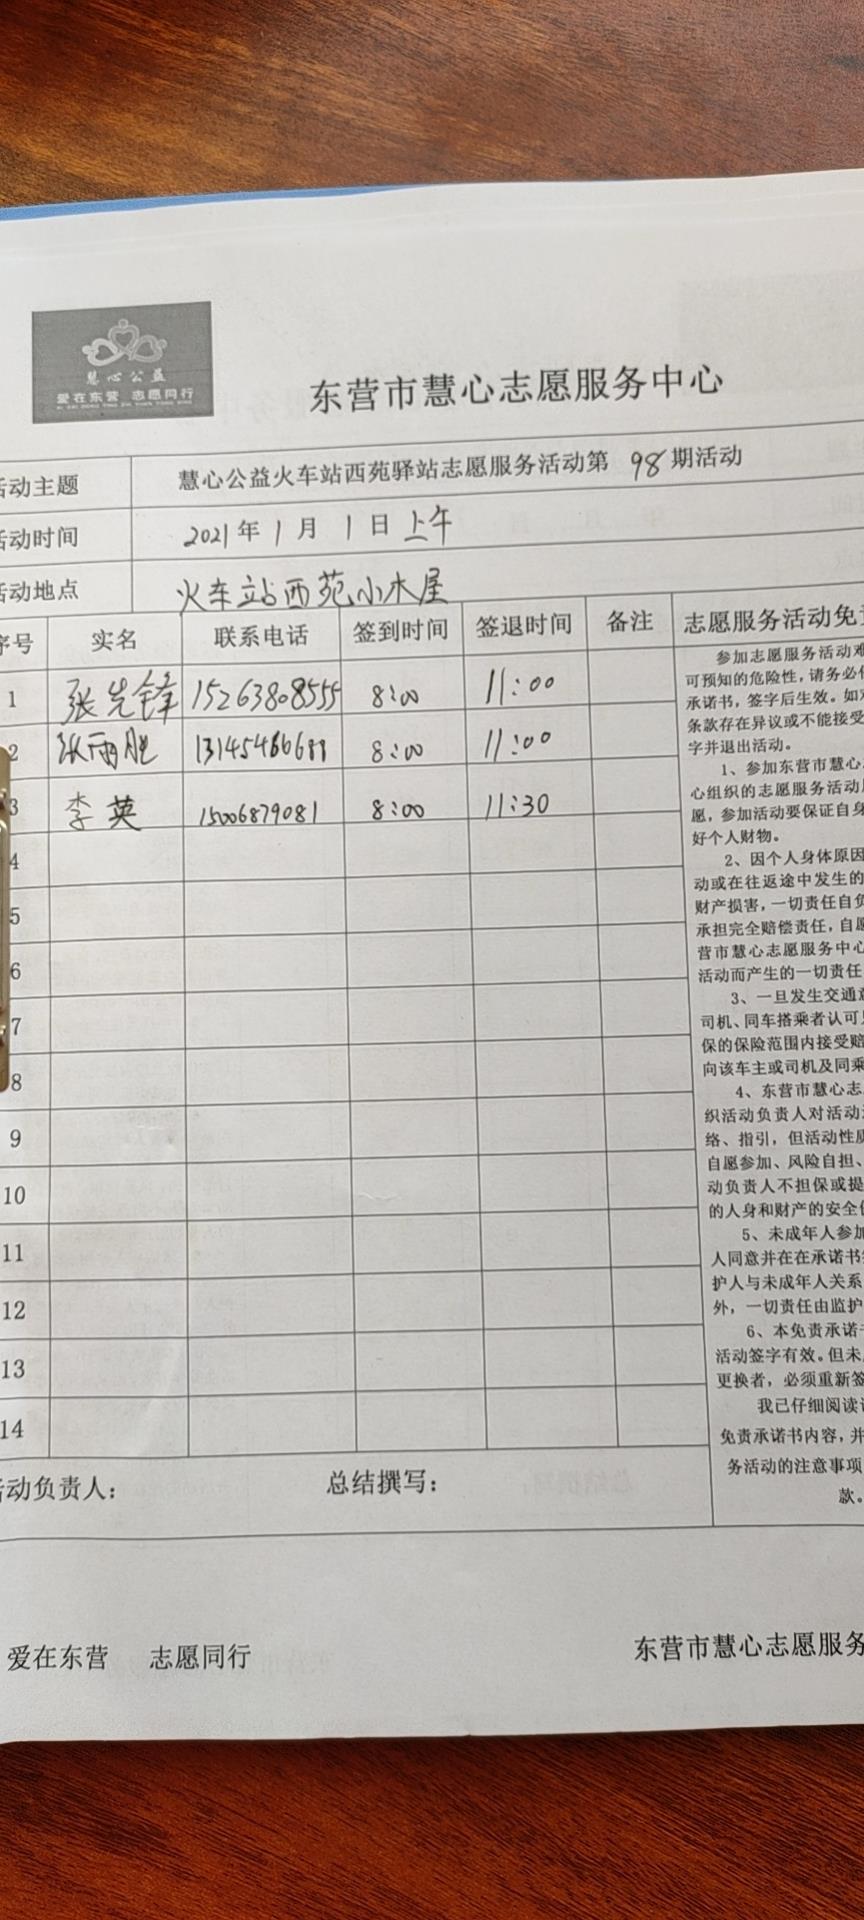 慧心公益
爱在东营 志愿同行
东营市慧心志愿服务中心
活动主题 慧心公益火车站西苑驿站志愿服务活动第98期活动
活动时间 2021年1月1日上午
活动地点 火车站西苑小木屋
序号 实名 联系电话 签到时间 签退时间 备注 志愿服务活动免责
1 张先锋 15263808555 8:00 11:00
2 张雨 8:00 11:00
3 李英 15006879081 8:00 11:30
4
5
6
7
8
9
10
11
12
13
14
参加志愿服务活动难
可预知的危险性,请务必
承诺书,签字后生效。如对
条款存在异议或不能接受
字并退出活动。
1、参加东营市慧心
心组织的志愿服务活动
愿,参加活动要保证自身
好个人财物。
2、因个人身体原因
动或在往返途中发生的
财产损害,一切责任自负
承担完全赔偿责任,自愿
营市慧心志愿服务中心
活动而产生的一切责任
3、一旦发生交通意
司机、同车搭乘者认可
保的保险范围内接受赔
向该车主或司机及同乘
4、东营市慧心志
织活动负责人对活动
络、指引,但活动性质
自愿参加、风险自担、
动负责人不担保或提
的人身和财产的安全
5、未成年人参加
人同意并在在承诺书
护人与未成年人关系
外,一切责任由监护
6、本免责承诺书
活动签字有效。但未
更换者,必须重新签
我已仔细阅读
免责承诺书内容,并
务活动的注意事项
款。
活动负责人: 总结撰写:
爱在东营 志愿同行 东营市慧心志愿服务